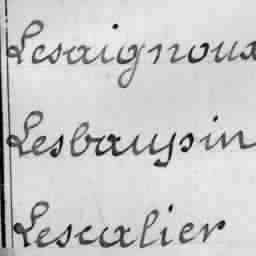 Lesaignoux
Lesbaupin
Lescalier